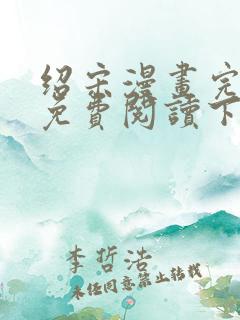 绍宋漫畫完
免費閱讀下
李哲浩
未经同意禁止转载